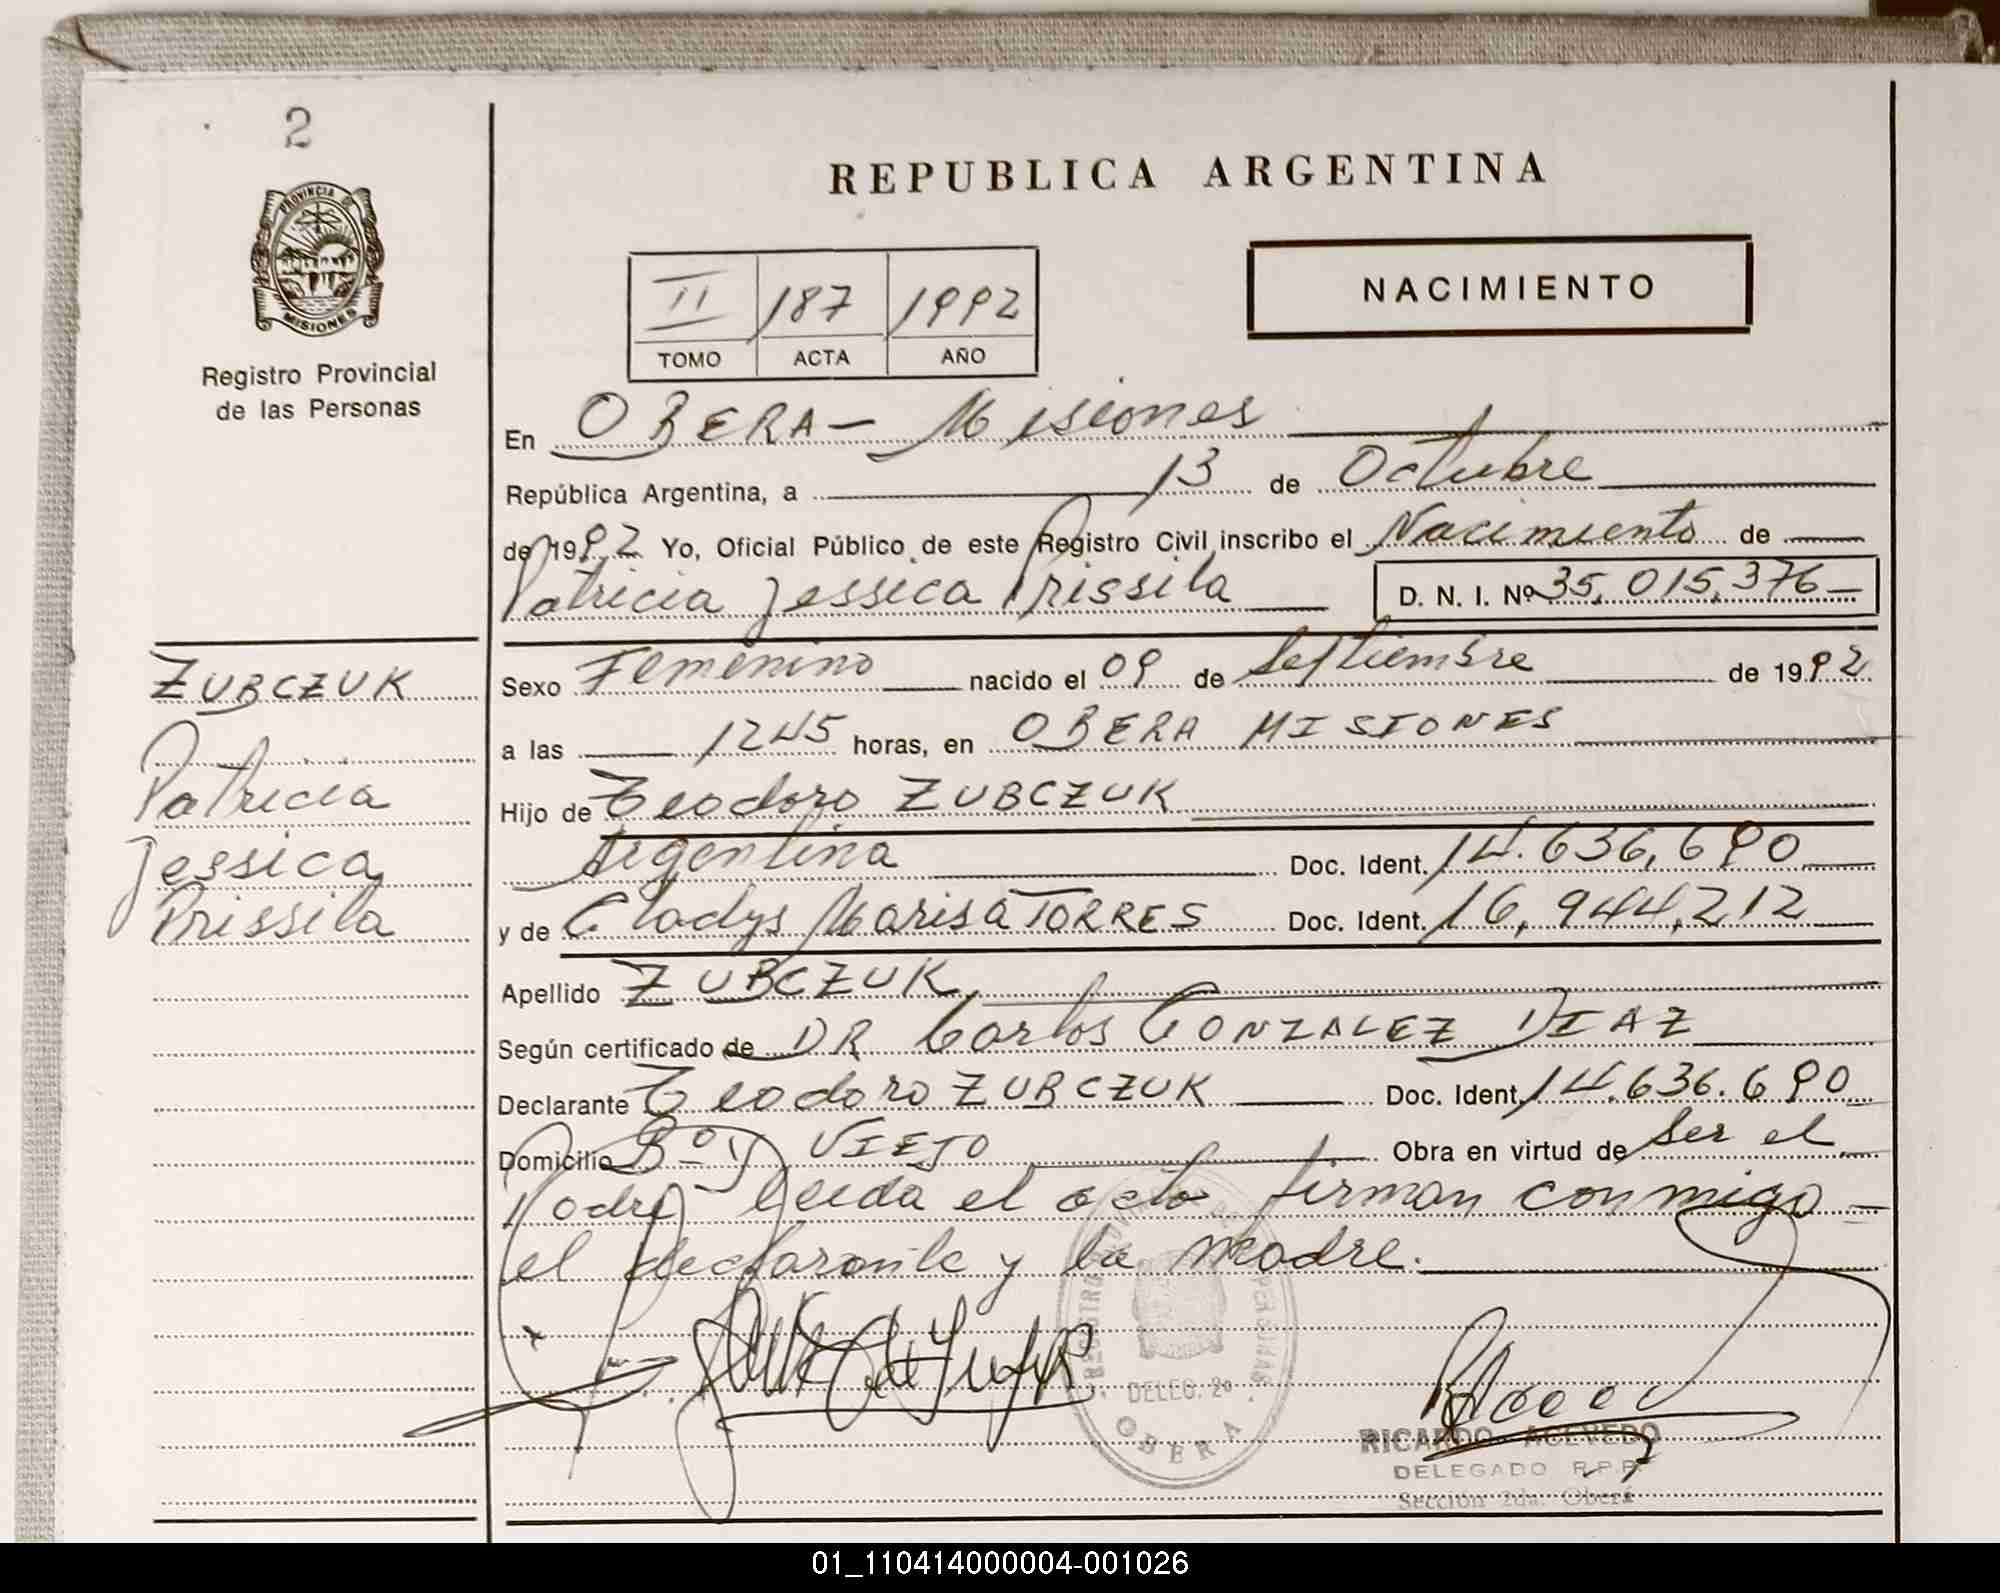 2
PROVINCIA DE
MISIONES
Registro Provincial
de las Personas
REPUBLICA ARGENTINA
NACIMIENTO
II 187 1992
TOMO ACTA AÑO
En OBERA - Misiones
República Argentina, a 13 de Octubre
de 1992 Yo, Oficial Público de este Registro Civil inscribo el Nacimiento de
Patricia Jessica Prissila D. N. I. Nº 35.015.376
ZUBCZUK
Patricia
Jessica
Prissila
Sexo Femenino nacido el 09 de Septiembre de 1992
a las 1245 horas, en OBERA MISIONES
Hijo de Teodoro ZUBCZUK
Argentina Doc. Ident. 14.636.690
y de Gladys Marisa TORRES Doc. Ident. 16.944.212
Apellido ZUBCZUK
Según certificado de DR Carlos GONZALEZ DIAZ
Declarante Teodoro ZUBCZUK Doc. Ident. 14.636.690
Domicilio Bº V VIEJO Obra en virtud de Ser el
Padre leida el acta firman conmigo
el declarante y la madre.
DELEG. 2º
OBERA
RICARDO ACEVEDO
DELEGADO R.P.P.
Sección 2da. Oberá
01_110414000004-001026